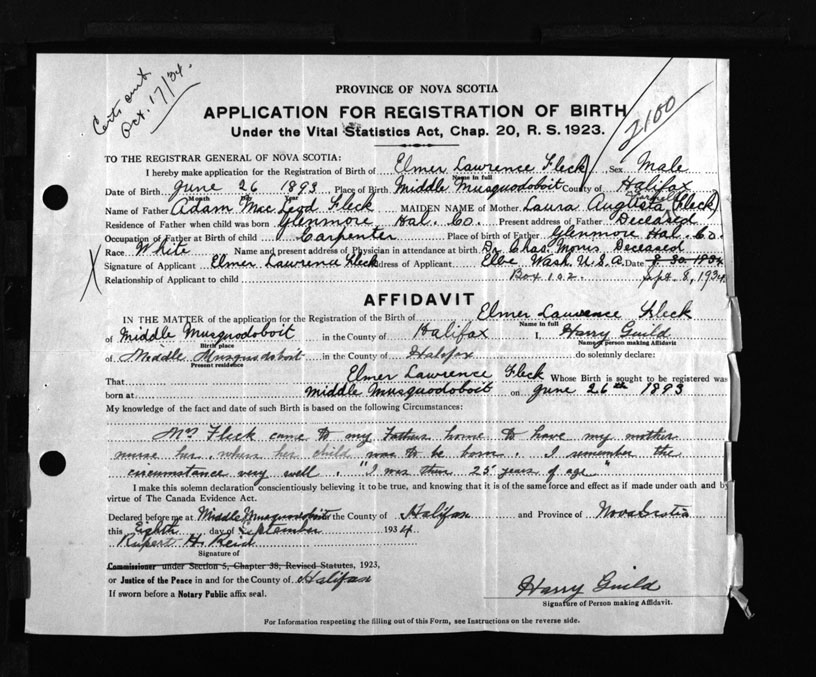 Certs sent
Oct. 17/34.
2100
PROVINCE OF NOVA SCOTIA
APPLICATION FOR REGISTRATION OF BIRTH
Under the Vital Statistics Act, Chap. 20, R. S. 1923.
TO THE REGISTRAR GENERAL OF NOVA SCOTIA:
I hereby make application for the Registration of Birth of Elmer Lawrence Fleck Sex Male
Name in full
Date of Birth June 26 1893 Place of Birth Middle Musquodoboit County of Halifax
Month Day Year
Name of Father Adam MacLeod Fleck MAIDEN NAME of Mother Laura Augusta (Fleck)
Residence of Father when child was born Glenmore Hal. Co. Present address of Father Deceased
Occupation of Father at Birth of child Carpenter Place of birth of Father Glenmore Hal. Co.
Race White Name and present address of Physician in attendance at birth Dr. Chas. Morris Deceased
Signature of Applicant Elmer Lawrence Fleck Address of Applicant Elbe Wash. U.S.A. Date 8-30-1934
Relationship of Applicant to child Box 102. Sept. 8, 1934
AFFIDAVIT
IN THE MATTER of the application for the Registration of the Birth of Elmer Lawrence Fleck
Name in full
of Middle Musquodoboit in the County of Halifax I, Harry Guild
Birth place Name of person making Affidavit
of Middle Musquodoboit in the County of Halifax do solemnly declare:
Present residence
That Elmer Lawrence Fleck Whose Birth is sought to be registered was
born at Middle Musquodoboit on June 26th 1893
My knowledge of the fact and date of such Birth is based on the following Circumstances:
Mrs Fleck came to my Fathers home to have my mother
nurse her, when her child was to be born. I remember the
circumstance very well. "I was then 25 years of age"
I make this solemn declaration conscientiously believing it to be true, and knowing that it is of the same force and effect as if made under oath and by
virtue of The Canada Evidence Act.
Declared before me at Middle Musquodoboit the County of Halifax and Province of Nova Scotia
this Eighth day of September 1934
Rupert H. Reid
Signature of
Commissioner under Section 5, Chapter 38, Revised Statutes, 1923,
or Justice of the Peace in and for the County of Halifax
If sworn before a Notary Public affix seal.
Harry Guild
Signature of Person making Affidavit.
For Information respecting the filling out of this Form, see Instructions on the reverse side.